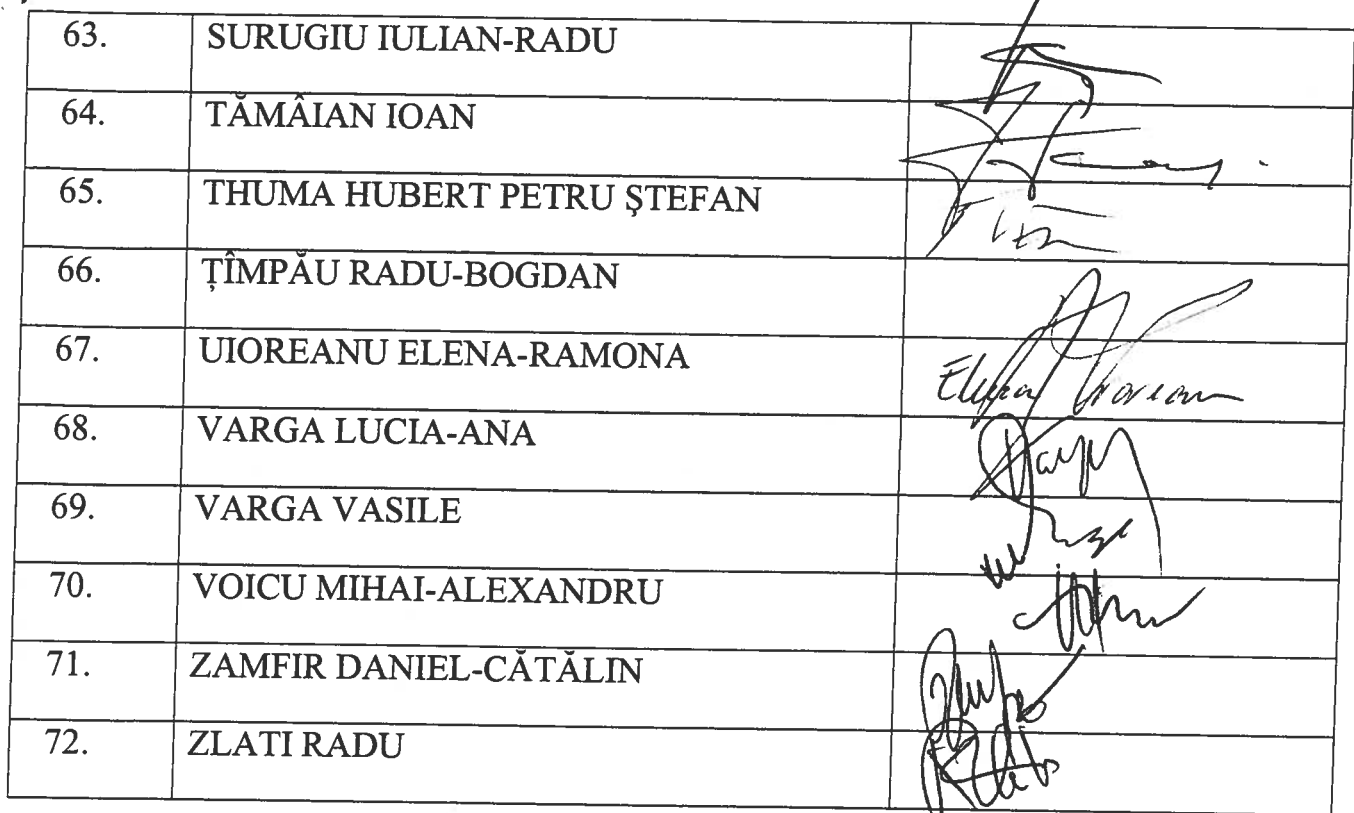 63. SURUGIU IULIAN-RADU
64. TĂMÂIAN IOAN
65. THUMA HUBERT PETRU ŞTEFAN
66. ȚÎMPĂU RADU-BOGDAN
67. UIOREANU ELENA-RAMONA Elena
68. VARGA LUCIA-ANA
69. VARGA VASILE
70. VOICU MIHAI-ALEXANDRU
71. ZAMFIR DANIEL-CĂTĂLIN
72. ZLATI RADU